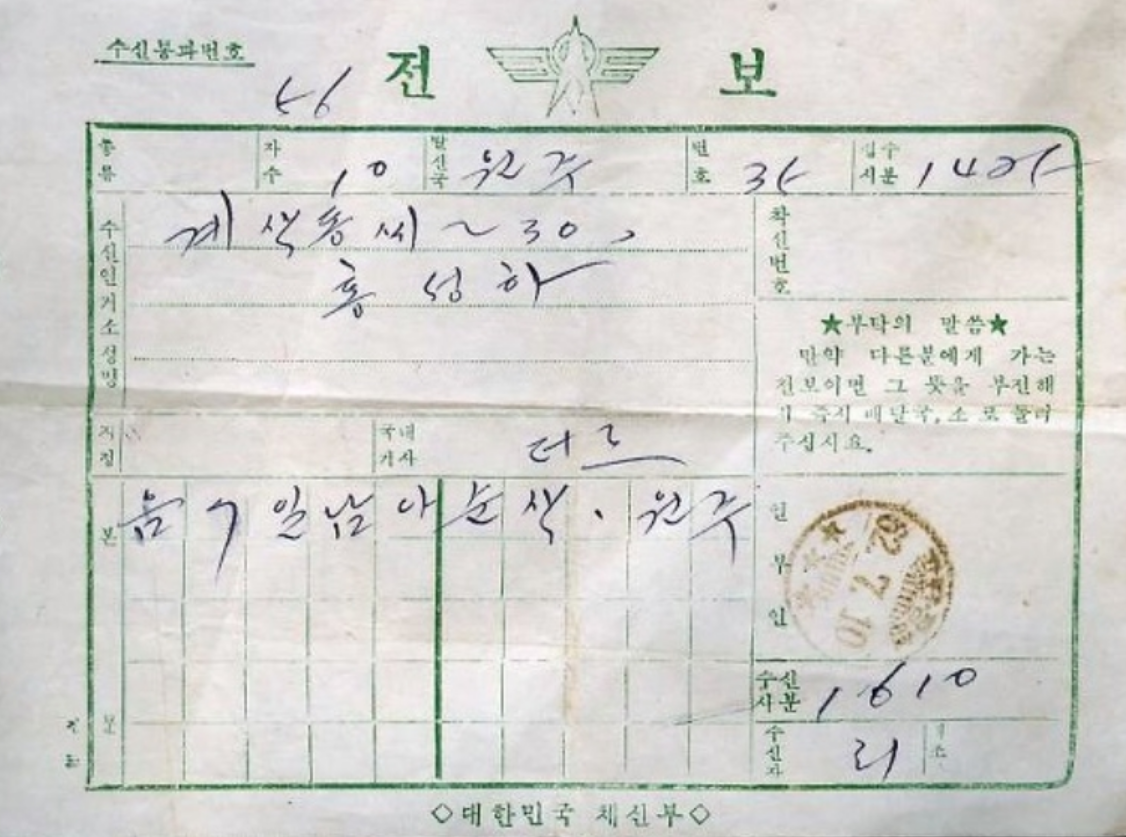 수신통과번호
전 보
56
종류
자수 10
발신국 원주
번호 35
접수시분 1425
수신인거소성명
계색동씨~30,
홍성하
착신번호
★부탁의 말씀★
만약 다른분에게 가는
전보이면 그 뜻을 부전해
서 즉시 배달국,소로 돌려
주십시요.
지정
국내기사
본문
음 7 일 남 아 순 색 . 원 주
일부인
62 7 10
수신시분 1610
수신자 리
◇대한민국 체신부◇